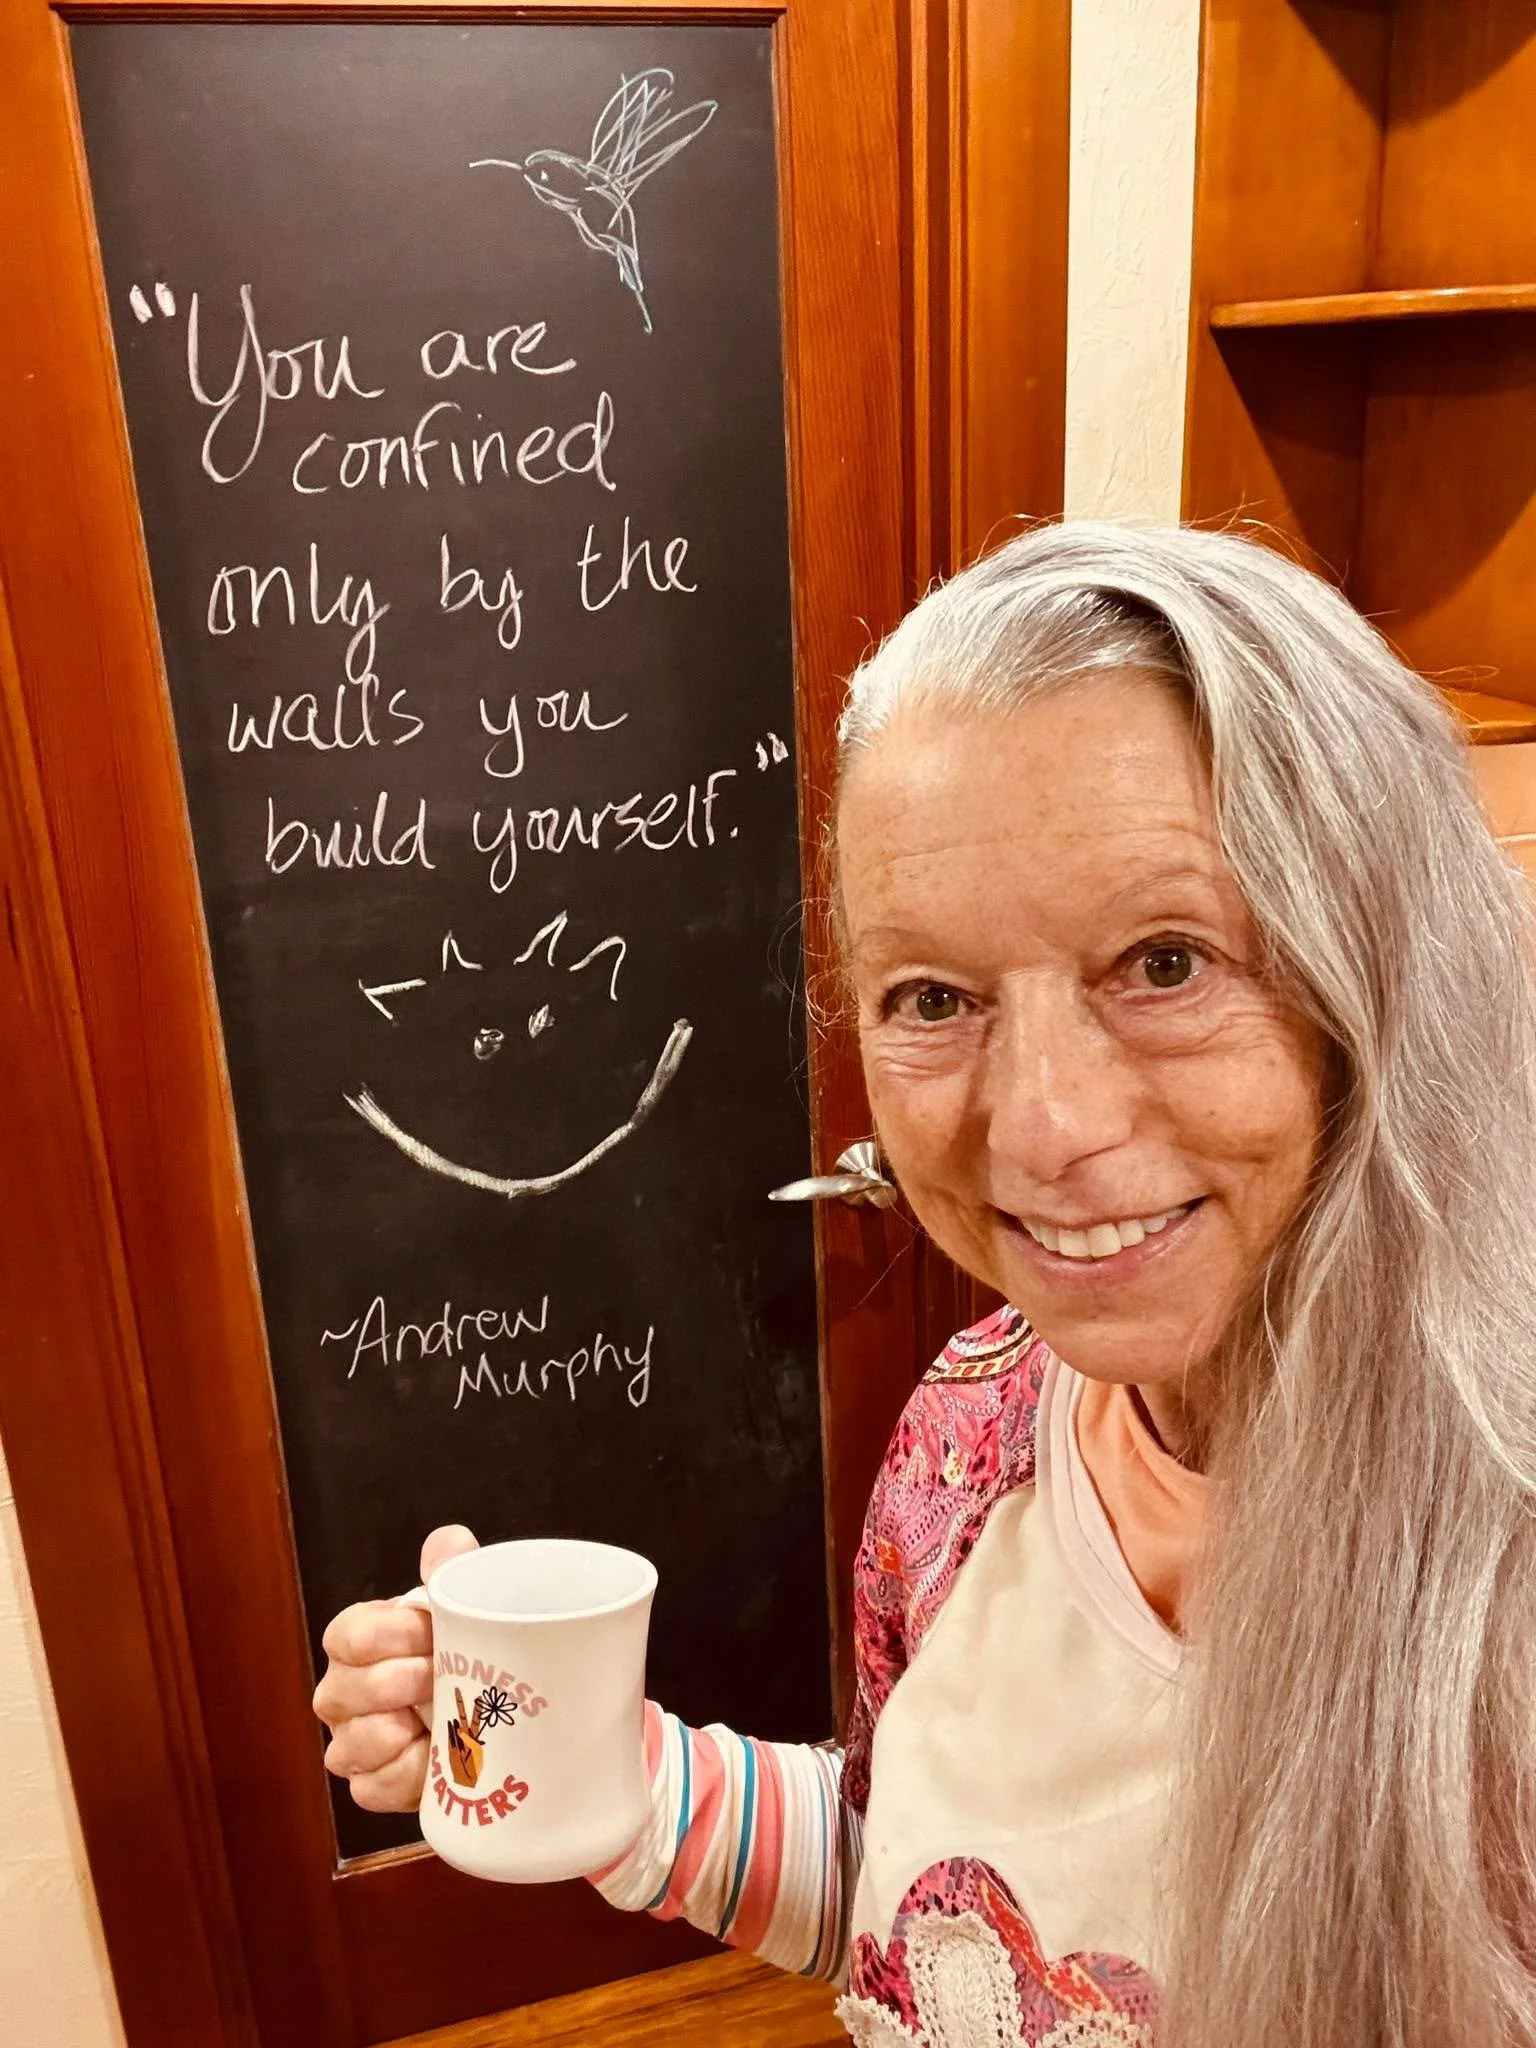 "You are
confined
only by the
walls you
build yourself."
~Andrew
Murphy
KINDNESS
MATTERS